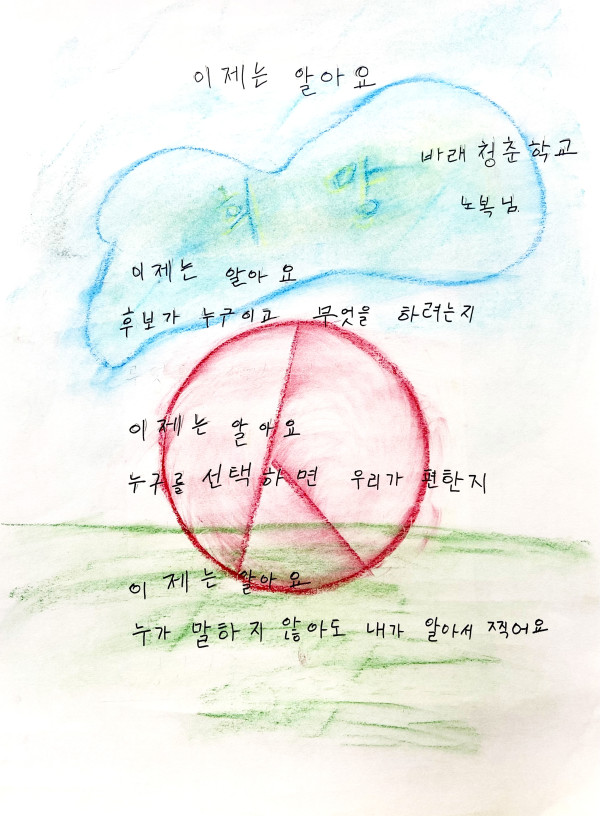 이제는 알아요
바래청춘학교
노복님.
희망
이제는 알아요
후보가 누구이고 무엇을 하려는지
이제는 알아요
누구를 선택하면 우리가 편한지
이제는 알아요
누가 말하지 않아도 내가 알아서 찍어요